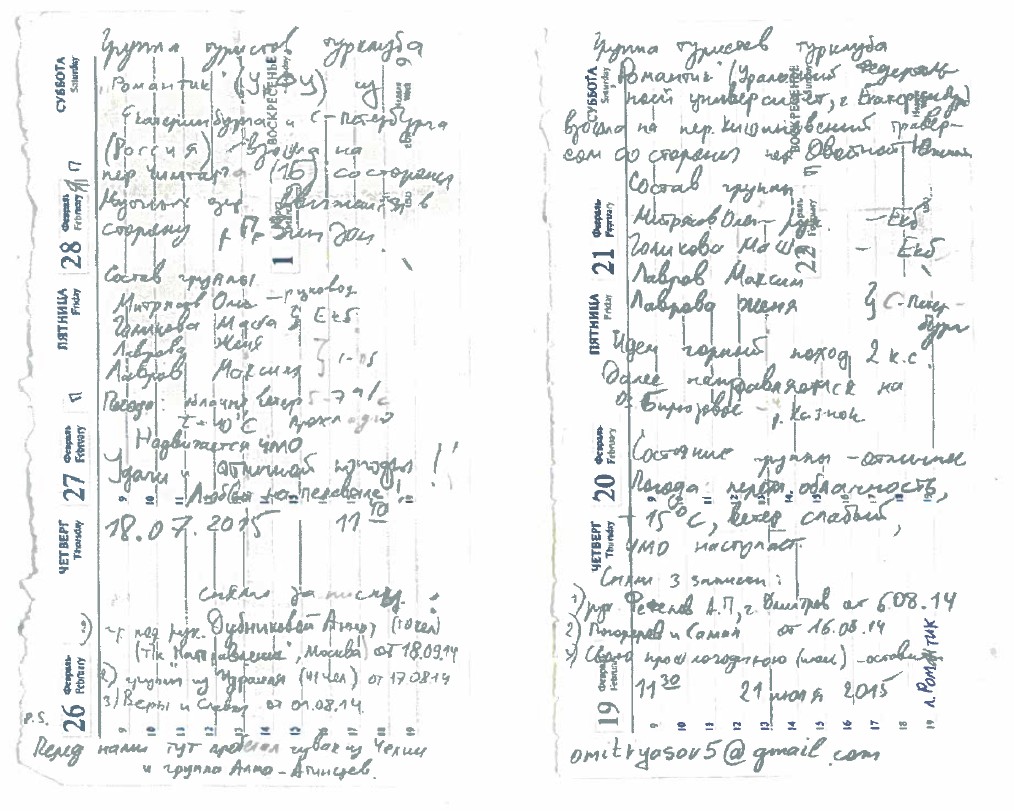 Группа туристов турклуба
"Романтик" (УрФУ) из
Екатеринбурга и С-Петербурга
(Россия) взошла на
пер. Чимтарга (1Б) со стороны
Мутных озер
сторону р.
Состав группы
Митрясов Олег – руковод
Голикова Маша } Екб
Лаврова Женя
Лавров Максим
Погода: ветер 5-7 м/с
t = 10°C
Надвигается ЧМО
Удачи и отличной погоды!
Любви на перевале!
18.07.2015 11 10
Сняли записки
1) гр. под рук. Дубниковой Анны (10 чел)
(т/к "Направление", Москва) от 18.09.14
2) группы из Израиля (41 чел) от 17.08.14
3) Веры и Славы от 01.08.14.
P.S.
Перед нами тут чувак из Чехии
и группа Алма-Атинцев.
СУББОТА
Saturday
ВОСКРЕСЕНЬЕ
28 Февраль
February
1
ПЯТНИЦА
Friday
27 Февраль
February
ЧЕТВЕРГ
Thursday
26 Февраль
February
9 10 11 12 13 14 15 16 17 18 19
Группа туристов турклуба
"Романтик" (Уральский Федераль
ный университет, г. Екатеринбург)
взошла на пер. траверсом
со стороны пер.
Состав группы
Митрясов Олег – рук. – Екб
Голикова Маша – Екб
Лавров Максим
Лаврова Женя } С-Петер
бург
Идем горный поход 2 к.с.
Далее направляемся на
оз. Бирюзовое – р. Казнок
Состояние группы – отличное
Погода: перем. облачность,
+ 15°C, ветер слабый,
ЧМО наступает.
Сняли 3 записки:
1) рук. А.П., г. Дмитров от 6.08.14
2) от 16.08.14
3) Свою прошлогоднюю
11 30 21 июля 2015
л. РОМАНТИК
omitryasov5@gmail.com
СУББОТА
Saturday
ВОСКРЕСЕНЬЕ
21 Февраль
February
22
ПЯТНИЦА
Friday
20 Февраль
February
ЧЕТВЕРГ
Thursday
19 Февраль
February
9 10 11 12 13 14 15 16 17 18 19